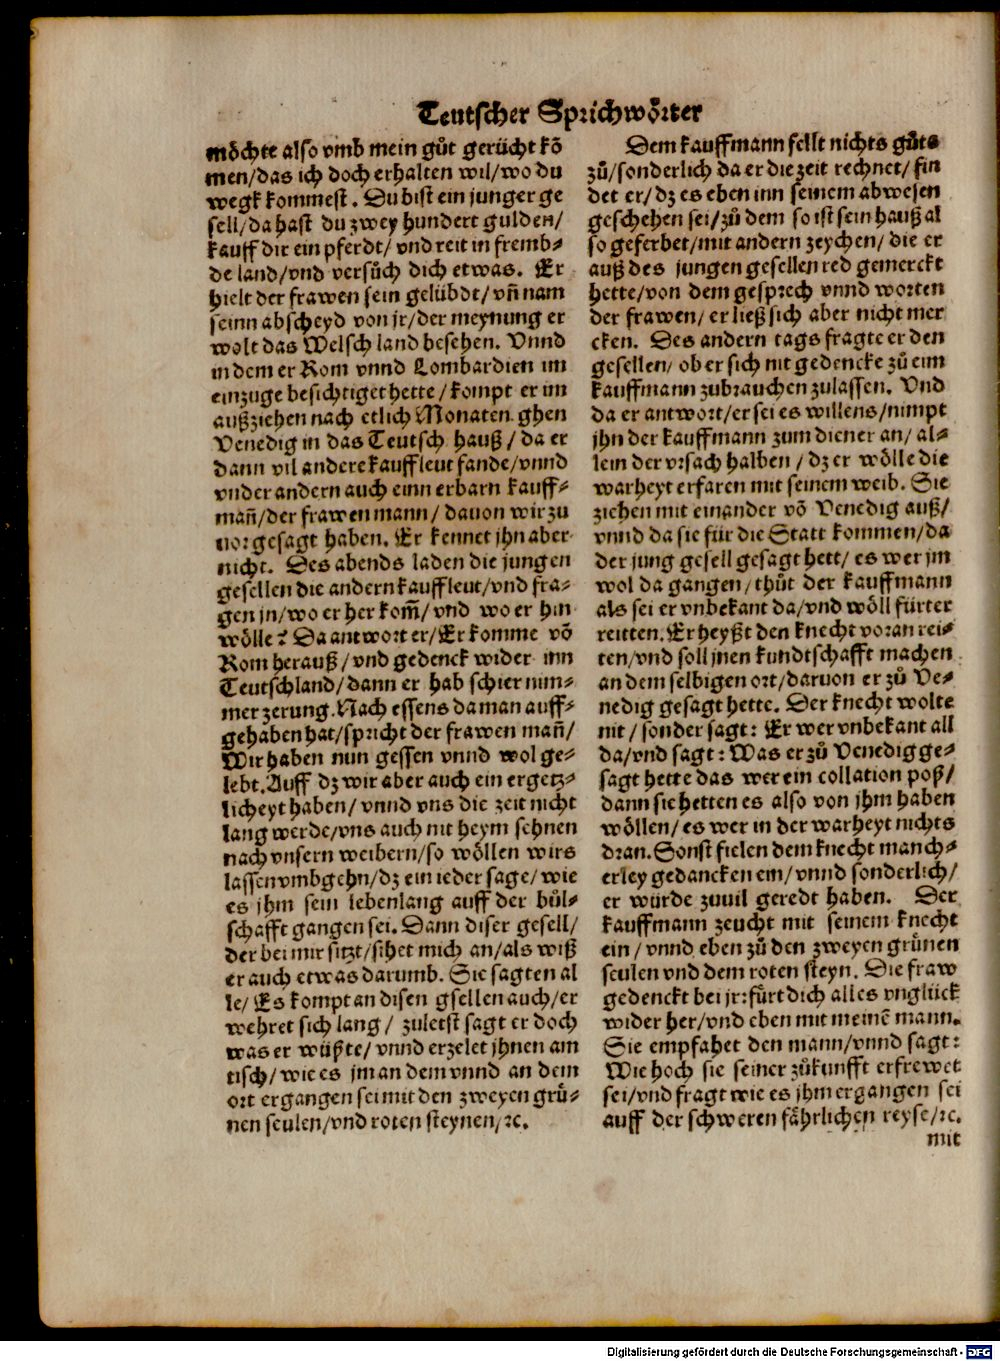 Teutscher Sprichwoͤrter
moͤchte also vmb mein guͦt geruͤcht kõ
men/das ich doch erhalten wil/wo du
wegk kommest. Du bist ein junger ge
sell/da hast du zwey hundert gulden/
kauff dir ein pferdt/vnd reit in fremb⸗
de land/vnd versuͦch dich etwas. Er
hielt der frawen sein geluͤbdt/vñ nam
seinn abscheyd von jr/der meynung er
wolt das Welsch land besehen. Vnnd
in dem er Rom vnnd Lombardien im
einzuge besichtiget hette/kompt er im
außziehen nach etlich Monaten ghen
Venedig in das Teutsch hauß/da er
dann vil andere kauffleut fande/vnnd
vnder andern auch einn erbarn kauff⸗
mañ/der frawen mann/dauon wir zu
uor gesagt haben. Er kennet jhn aber
nicht. Des abends laden die jungen
gesellen die andern kauffleut/vnd fra⸗
gen jn/wo er her kom̃/vnd wo er hin
woͤlle? Da antwort er/Er komme võ
Rom herauß/vnd gedenck wider inn
Teutschland/dann er hab schier nim⸗
mer zerung. Nach essens da man auff⸗
gehaben hat/spricht der frawen mañ/
Wir haben nun gessen vnnd wol ge⸗
lebt. Auff dz wir aber auch ein ergetz⸗
licheyt haben/vnnd vns die zeit nicht
lang werde/vns auch nit heym sehnen
nach vnsern weibern/so woͤllen wirs
lassen vmbgehn/dz ein ieder sage/wie
es jhm sein lebenlang auff der buͤl⸗
schafft gangen sei. Dann diser gesell/
der bei mir sitzt/sihet mich an/als wiß
er auch etwas darumb. Sie sagten al
le/Es kompt an disen gsellen auch/er
wehret sich lang/zuletst sagt er doch
was er wuͤßte/vnnd erzelet jhnen am
tisch/wie es jm an dem vnnd an dem
ort ergangen sei mit den zweyen gruͤ⸗
nen seulen/vnd roten steynen/ꝛc.
Dem kauffmann fellt nichts guͦts
zuͦ/sonderlich da er die zeit rechnet/fin
det er/dz es eben inn seinem abwesen
geschehen sei/zuͦ dem so ist sein hauß al
so geferbet/mit andern zeychen/die er
auß des jungen gesellen red gemerckt
hette/von dem gesprech vnnd worten
der frawen/er ließ sich aber nicht mer
cken. Des andern tags fragte er den
gesellen/ob er sich nit gedencke zuͦ eim
kauffmann zubrauchen zulassen. Vnd
da er antwort/er sei es willens/nimpt
jhn der kauffmann zum diener an/al⸗
lein der vrsach halben/dz er woͤlle die
warheyt erfaren mit seinem weib. Sie
ziehen mit einander võ Venedig auß/
vnnd da sie für die Statt kommen/da
der jung gesell gesagt hett/es wer jm
wol da gangen/thuͦt der kauffmann
als sei er vnbekant da/vnd woͤll fürter
reitten. Er heyßt den knecht voran rei⸗
ten/vnd soll jnen kundtschafft machen
an dem selbigen ort/daruon er zuͦ Ve⸗
nedig gesagt hette. Der knecht wolte
nit/sonder sagt: Er wer vnbekant all
da/vnd sagt: Was er zuͦ Venedig ge⸗
sagt hette das wer ein collation poß/
dann sie hetten es also von jhm haben
woͤllen/es wer in der warheyt nichts
dran. Sonst fielen dem knecht manch⸗
erley gedancken ein/vnnd sonderlich/
er wuͤrde zuuil geredt haben. Der
kauffmann zeucht mit seinem knecht
ein/vnnd eben zuͦ den zweyen gruͤnen
seulen vnd dem roten steyn. Die fraw
gedenckt bei jr: fuͤrt dich alles vnglück
wider her/vnd eben mit meinẽ mann.
Sie empfahet den mann/vnnd sagt:
Wie hoch sie seiner zuͦkunfft erfrewet
sei/vnd fragt wie es jhm ergangen sei
auff der schweren faͤhrlichen reyse/ꝛc.
mit
Digitalisierung gefördert durch die Deutsche Forschungsgemeinschaft - DFG